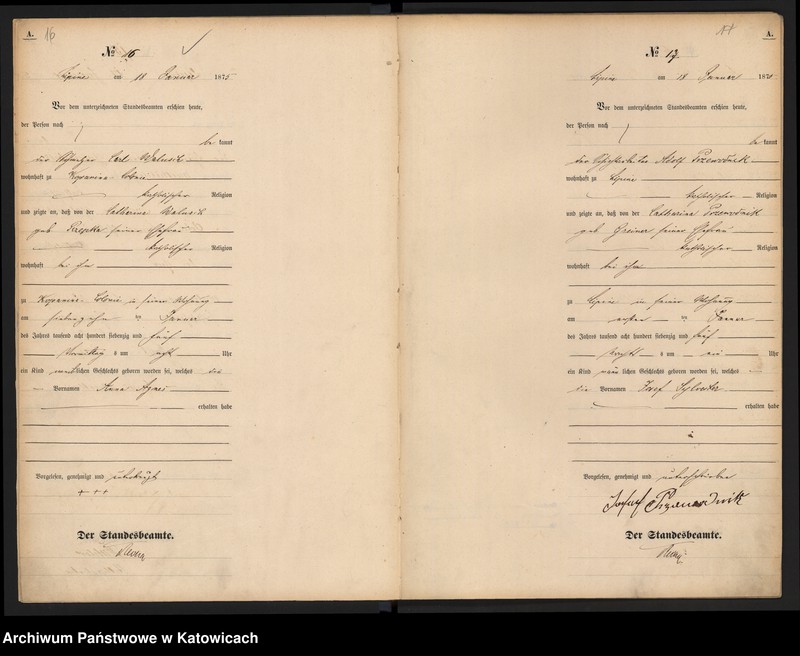 A. 16
№ 16
Lipine am 18 Januar 1875
Vor dem unterzeichneten Standesbeamten erschien heute,
der Person nach
be kannt
der Carl Waluzik
wohnhaft zu Kopanina Colonie
katholischer Religion
und zeigte an, daß von der Catharina Waluzik
geb seiner Ehefrau
katholischer Religion
wohnhaft bei ihm
zu Kopanina Colonie in seiner Wohnung
am siebenzehn ten Januar
des Jahres tausend acht hundert siebenzig und fünf
Vormittag s um acht Uhr
ein Kind weiblichen Geschlechts geboren worden sei, welches die
Vornamen Anna Agnes
erhalten habe
Vorgelesen, genehmigt und unterkreuzt
+ + +
Der Standesbeamte.
17 A.
№ 17
Lipine am 18 Januar 1875
Vor dem unterzeichneten Standesbeamten erschien heute,
der Person nach
be kannt
der
wohnhaft zu Lipine
katholischer Religion
und zeigte an, daß von der Catharina
geb Greiner seiner Ehefrau
katholischer Religion
wohnhaft bei ihm
zu Lipine in seiner Wohnung
am ersten ten Januar
des Jahres tausend acht hundert siebenzig und fünf
Nachts um ein Uhr
ein Kind männlichen Geschlechts geboren worden sei, welches
die Vornamen Josef Sylvester
erhalten habe
Vorgelesen, genehmigt und unterschrieben
Der Standesbeamte.
Archiwum Państwowe w Katowicach